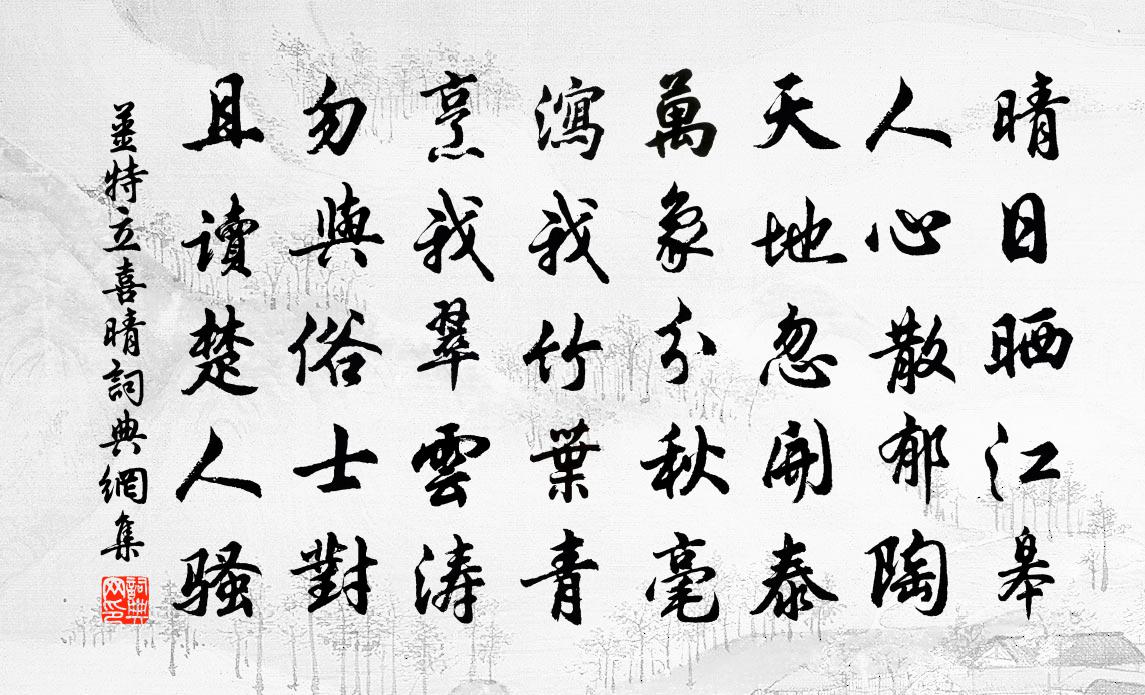 晴日晒江皋
人心散郁陶
天地忽開泰
萬象分秋毫
瀉我竹葉青
烹我翠雲涛
勿與俗士對
且讀楚人騷
姜特立喜晴詞典網集
詞典網印